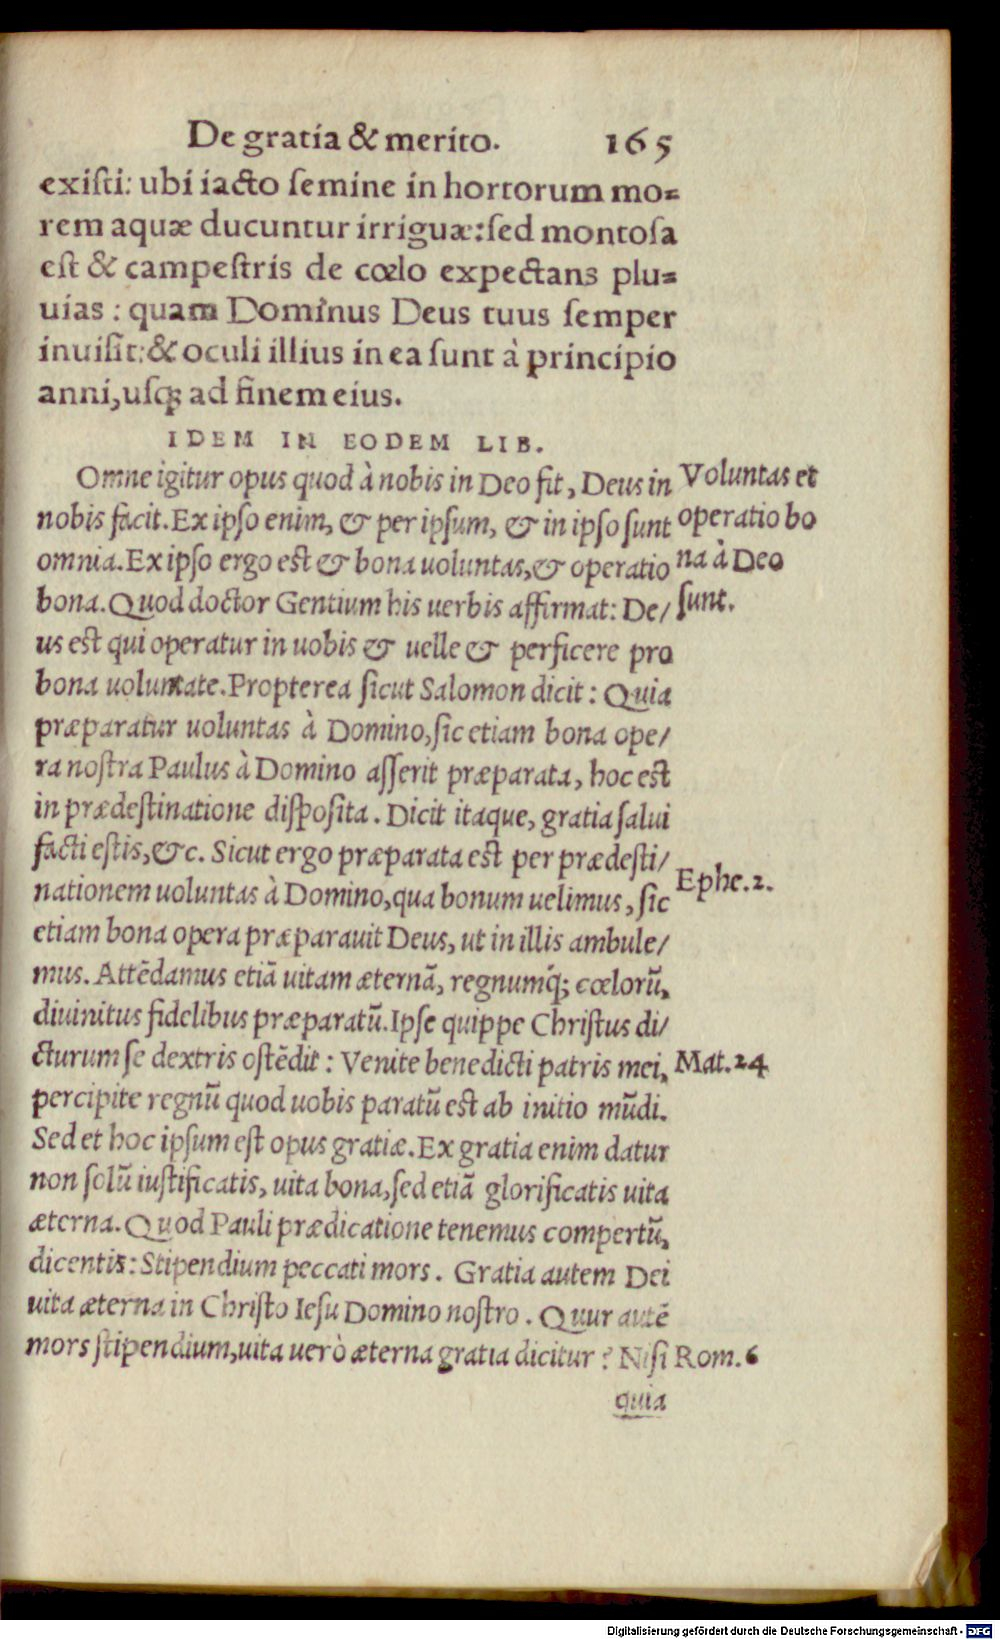 De gratia & merito. 165
existi: ubi iacto semine in hortorum mo=
rem aquæ ducuntur irriguæ: sed montosa
est & campestris de cœlo expectans plu=
uias : quam Dominus Deus tuus semper
inuisit: & oculi illius in ea sunt à principio
anni, usq; ad finem eius.
IDEM IN EODEM LIB.
Omne igitur opus quod à nobis in Deo fit, Deus in
nobis facit. Ex ipso enim, & per ipsum, & in ipso sunt
omnia. Ex ipso ergo est & bona uoluntas, & operatio
bona. Quod doctor Gentium his uerbis affirmat: De/
us est qui operatur in uobis & uelle & perficere pro
bona uoluntate. Propterea sicut Salomon dicit : Quia
præparatur uoluntas à Domino, sic etiam bona ope/
ra nostra Paulus à Domino asserit præparata, hoc est
in prædestinatione disposita. Dicit itaque, gratia salui
facti estis, &c. Sicut ergo præparata est per prædesti/
nationem uoluntas à Domino, qua bonum uelimus, sic
etiam bona opera præparauit Deus, ut in illis ambule/
mus. Attēdamus etiā uitam æternā, regnumq́; cœlorū,
diuinitus fidelibus præparatū. Ipse quippe Christus di/
cturum se dextris ostēdit : Venite benedicti patris mei,
percipite regnū quod uobis paratū est ab initio mūdi.
Sed et hoc ipsum est opus gratiæ. Ex gratia enim datur
non solū iustificatis, uita bona, sed etiā glorificatis uita
æterna. Quod Pauli prædicatione tenemus compertū,
dicentis: Stipendium peccati mors. Gratia autem Dei
uita æterna in Christo Iesu Domino nostro. Quur autē
mors stipendium, uita uerò æterna gratia dicitur ? Nisi
quia
Voluntas et
operatio bo
na à Deo
sunt.
Ephe.2.
Mat.24
Rom.6
Digitalisierung gefördert durch die Deutsche Forschungsgemeinschaft - DFG